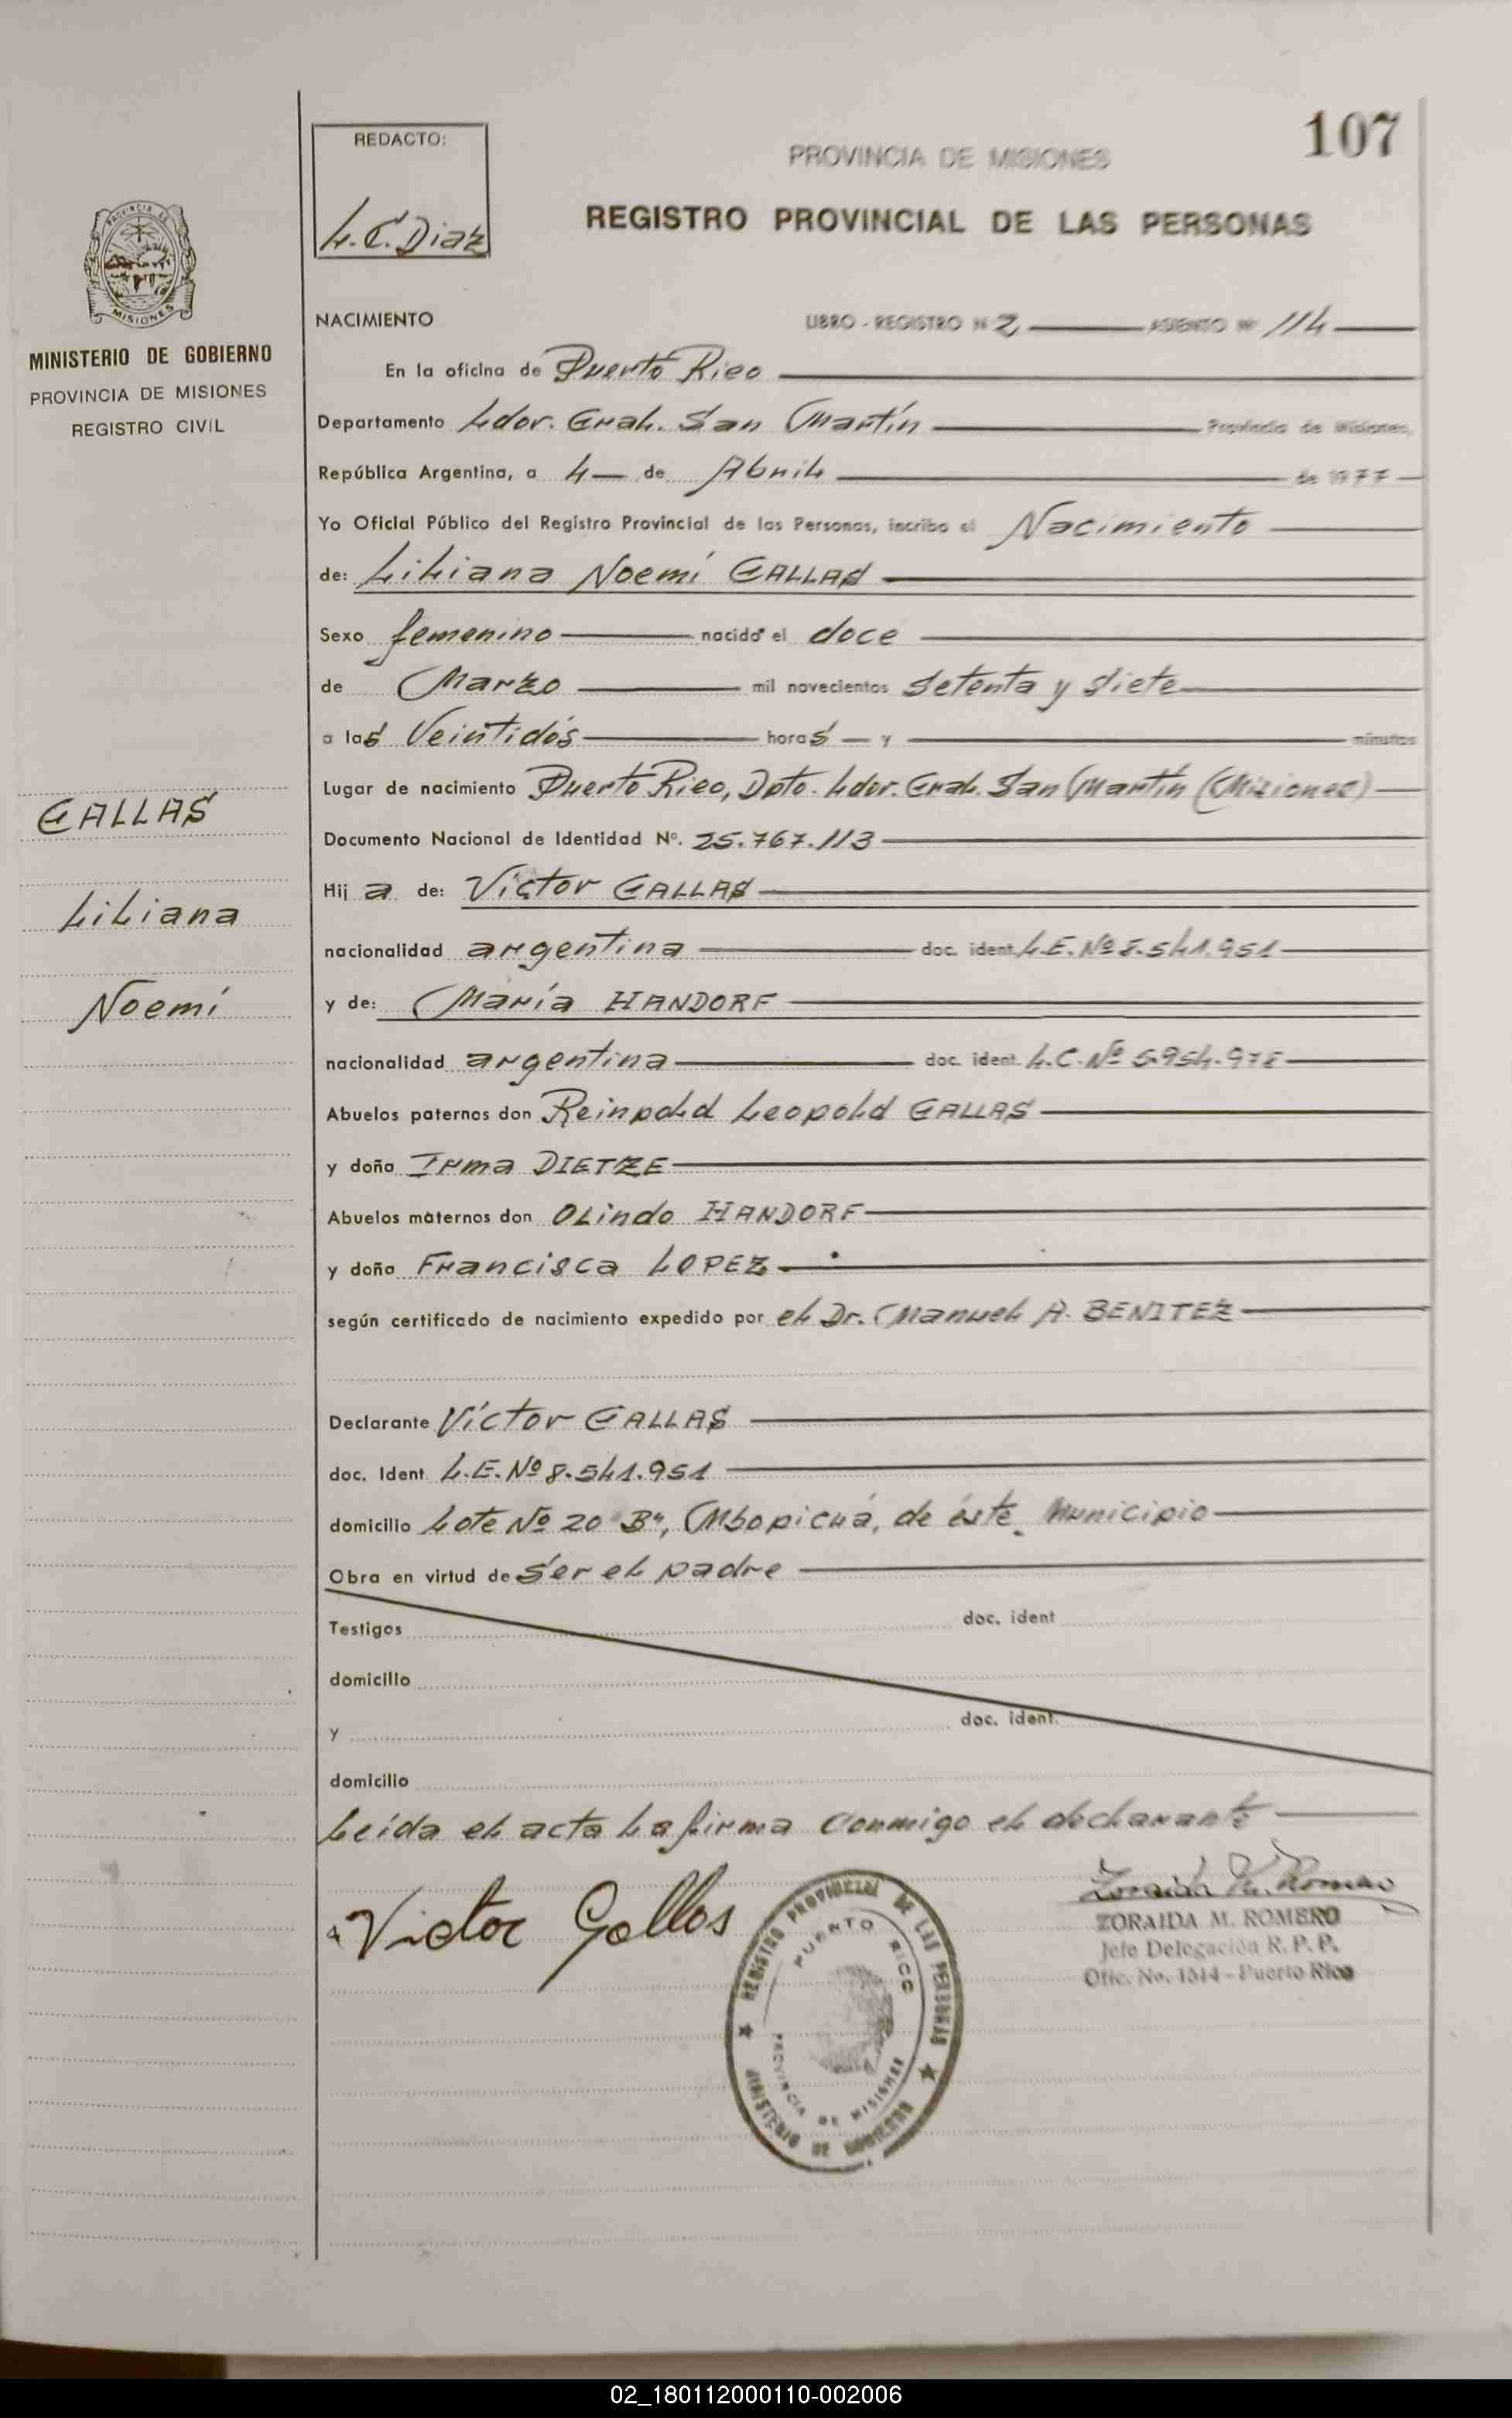 107
REDACTO:
L.C. Diaz
PROVINCIA DE MISIONES
REGISTRO PROVINCIAL DE LAS PERSONAS
PROVINCIA DE
MISIONES
MINISTERIO DE GOBIERNO
PROVINCIA DE MISIONES
REGISTRO CIVIL
GALLAS
Liliana
Noemí
NACIMIENTO LIBRO - REGISTRO Nº 2 ASIENTO Nº 114
En la oficina de Puerto Rico
Departamento Ldor. Gral. San Martín Provincia de Misiones,
República Argentina, a 4 de Abril de 1977
Yo Oficial Público del Registro Provincial de las Personas, incribo el Nacimiento
de: Liliana Noemí GALLAS
Sexo femenino nacido el doce
de Marzo mil novecientos Setenta y Siete
a las Veintidós horas y minutos
Lugar de nacimiento Puerto Rico, Dpto. Ldor. Gral. San Martín (Misiones)
Documento Nacional de Identidad Nº. 25.767.113
Hij a de: Víctor GALLAS
nacionalidad argentina doc. ident. L.E. Nº 8.541.951
y de: María HANDORF
nacionalidad argentina doc. ident. L.C. Nº 5.954.978
Abuelos paternos don Reinpold Leopold GALLAS
y doña Irma DIETZE
Abuelos maternos don Olindo HANDORF
y doña Francisca LOPEZ
según certificado de nacimiento expedido por el Dr. Manuel A. BENITEZ
Declarante Víctor GALLAS
doc. Ident. L.E. Nº 8.541.951
domicilio Lote Nº 20 "B", Mbopicuá, de éste Municipio
Obra en virtud de Ser el padre
Testigos doc. ident
domicilio
y doc. ident.
domicilio
Leída el acta la firma conmigo el declarante
Victor Gallas
REGISTRO PROVINCIAL DE LAS PERSONAS
PUERTO RICO
PROVINCIA DE MISIONES
MINISTERIO DE GOBIERNO
Zoraida M. Romero
ZORAIDA M. ROMERO
Jefe Delegación R. P. P.
Ofic. No. 1514 - Puerto Rico
02_180112000110-002006